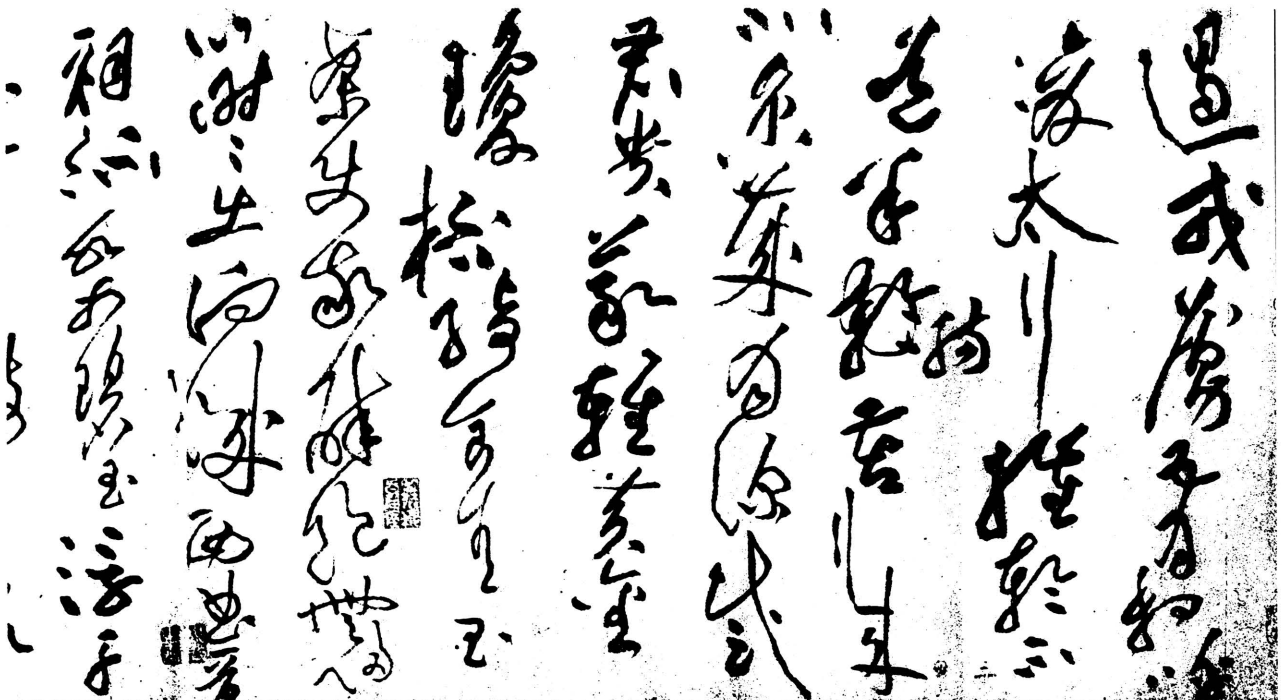 遏戎虜五月相呼
渡太行摧輪不
道羊腸苦行来
北涼歲月深感
君貴義輕黃金
瓊杯綺食青玉
案使我醉飽無歸
心時時出向城西曲晉
祠流水如碧玉浮舟